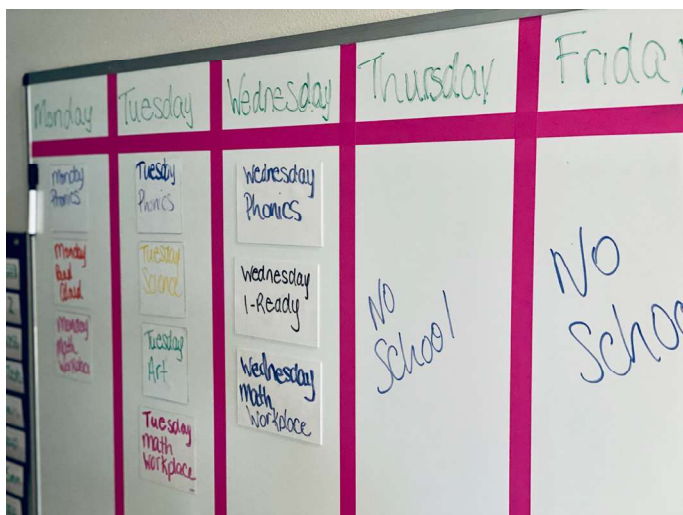 Monday
Tuesday
Wednesday
Thursday
Friday
Monday
Phonics
Monday
Math
Workplace
Tuesday
Phonics
Tuesday
Science
Tuesday
Art
Tuesday
math
Workplace
Wednesday
Phonics
Wednesday
I-Ready
Wednesday
math
Workplace
No
School
No
Schoo